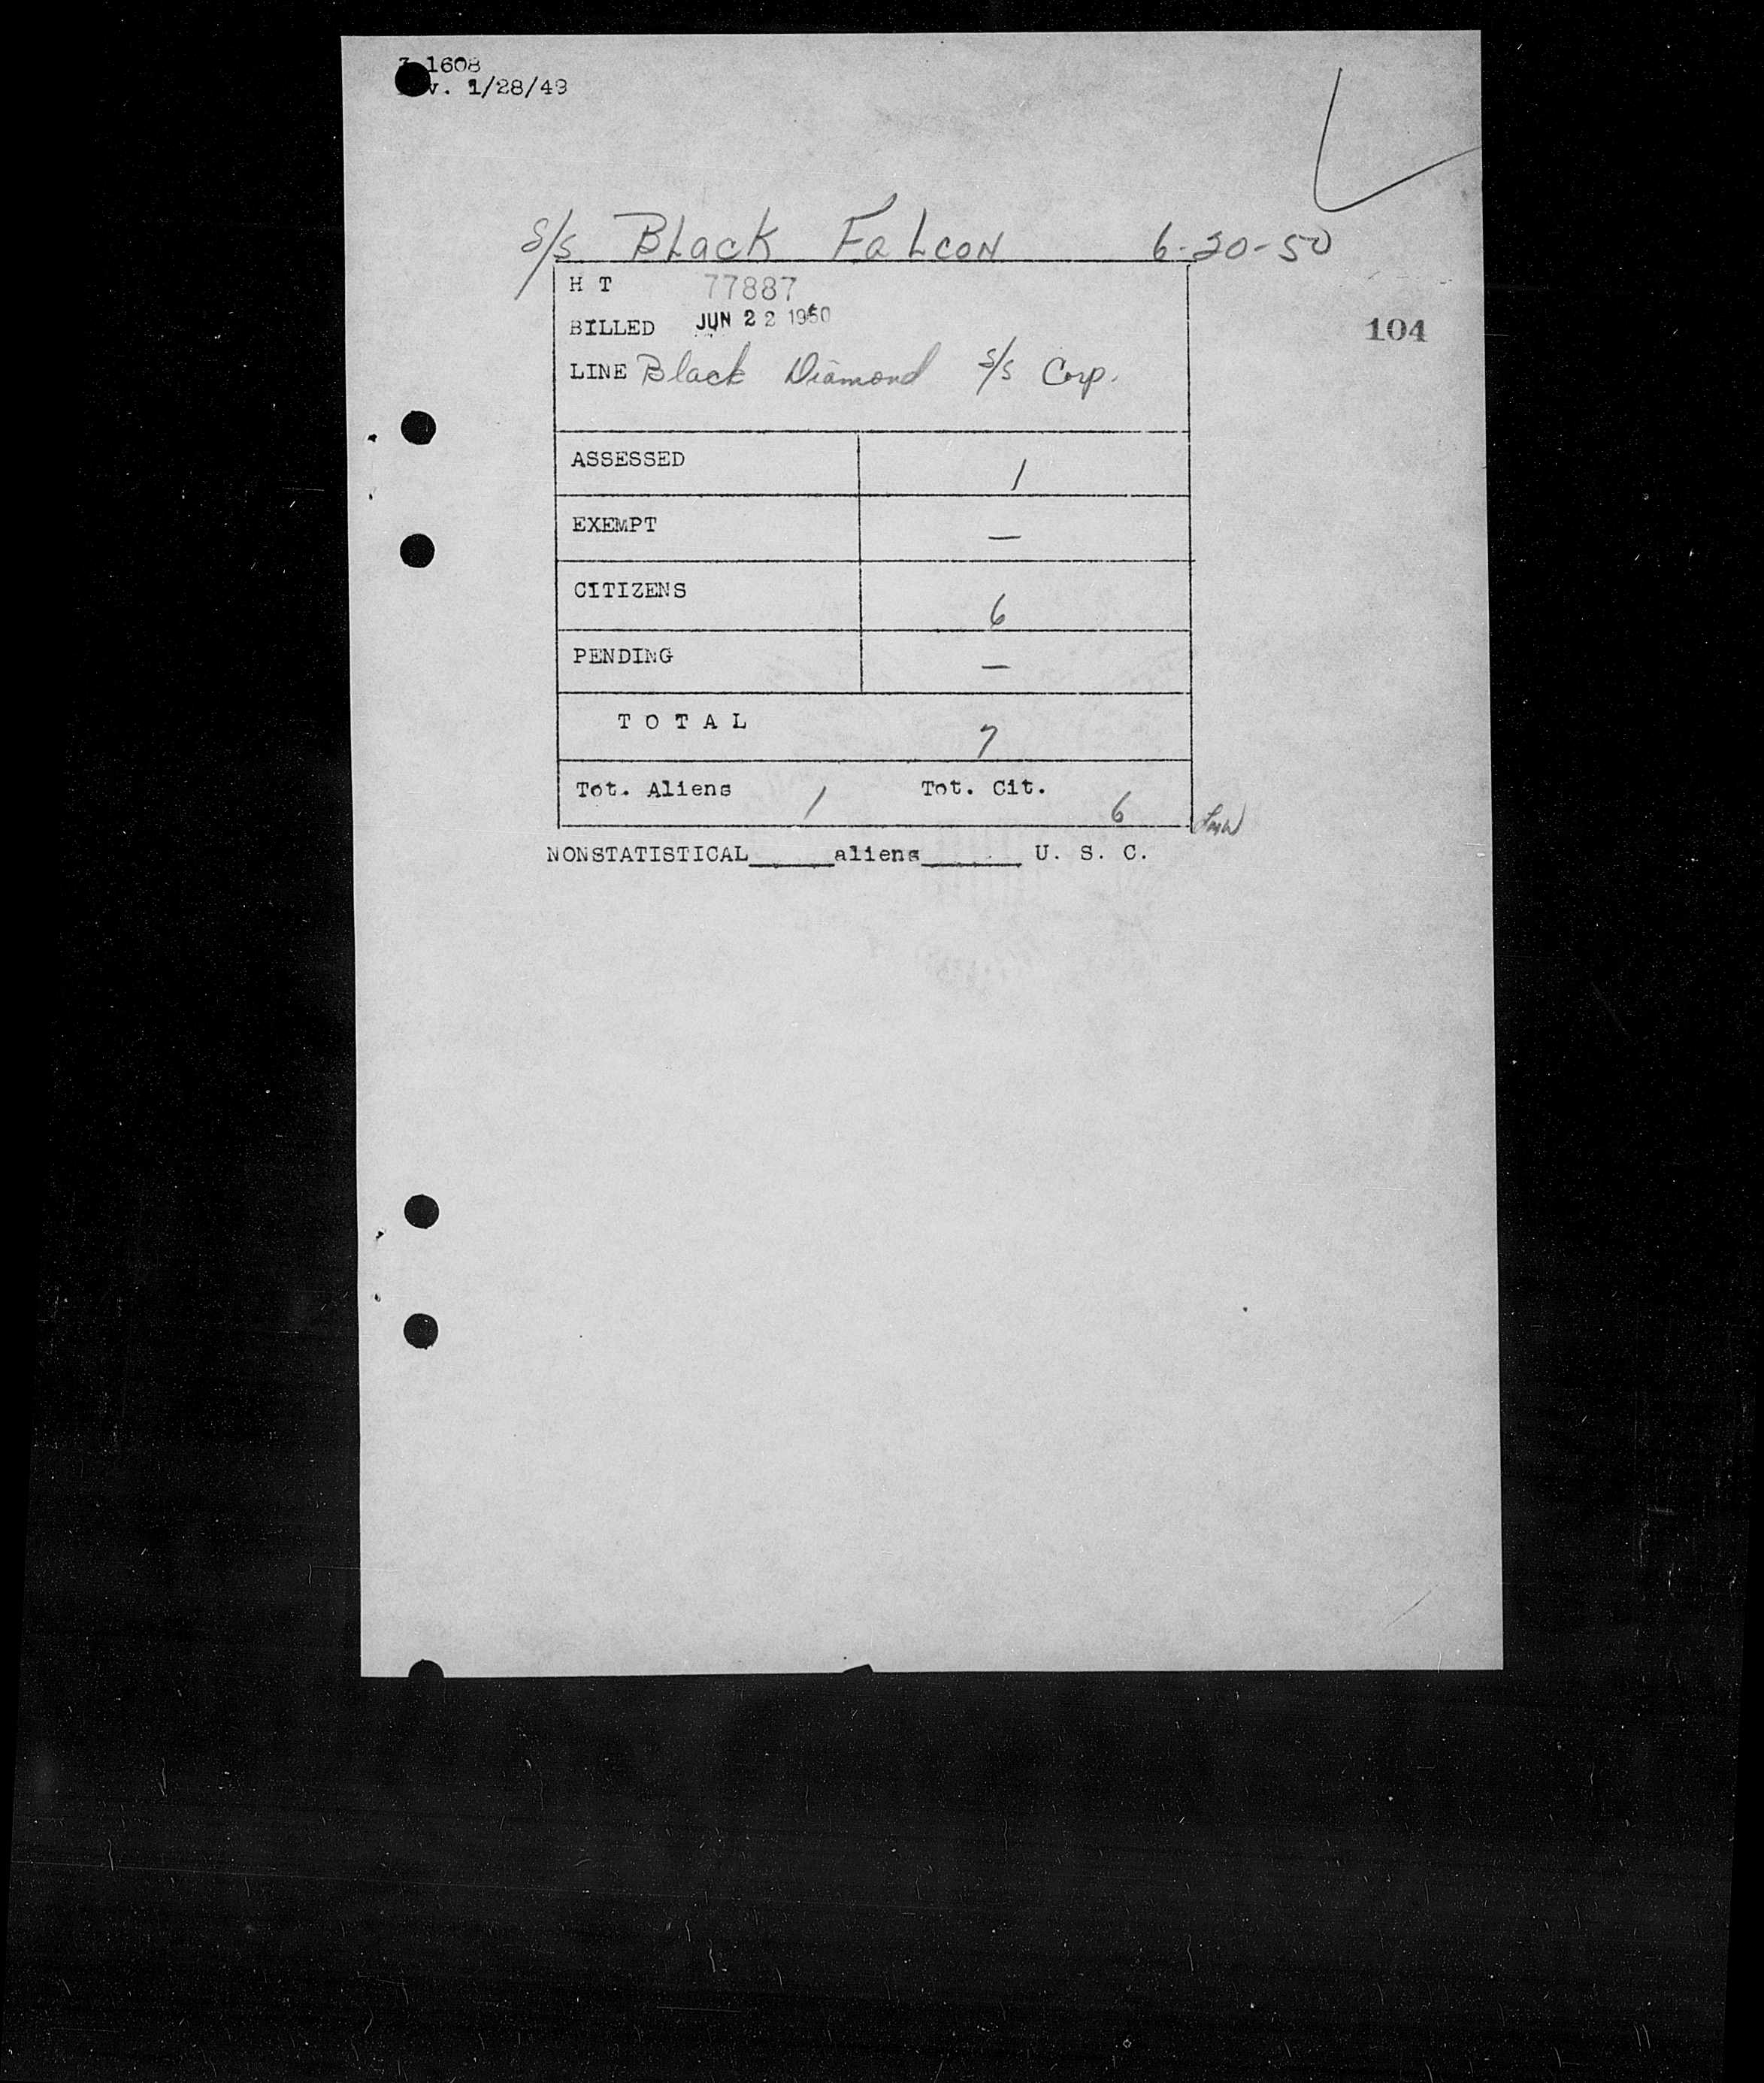 1608
v. 1/28/49
S/S Black Falcon 6-20-50
H T 77887
BILLED JUN 22 1950
104
LINE Black Diamond S/S Corp.
ASSESSED 1
EXEMPT —
CITIZENS 6
PENDING —
TOTAL 7
Tot. Aliens 1 Tot. Cit. 6
NONSTATISTICAL_____aliens______ U. S. C.